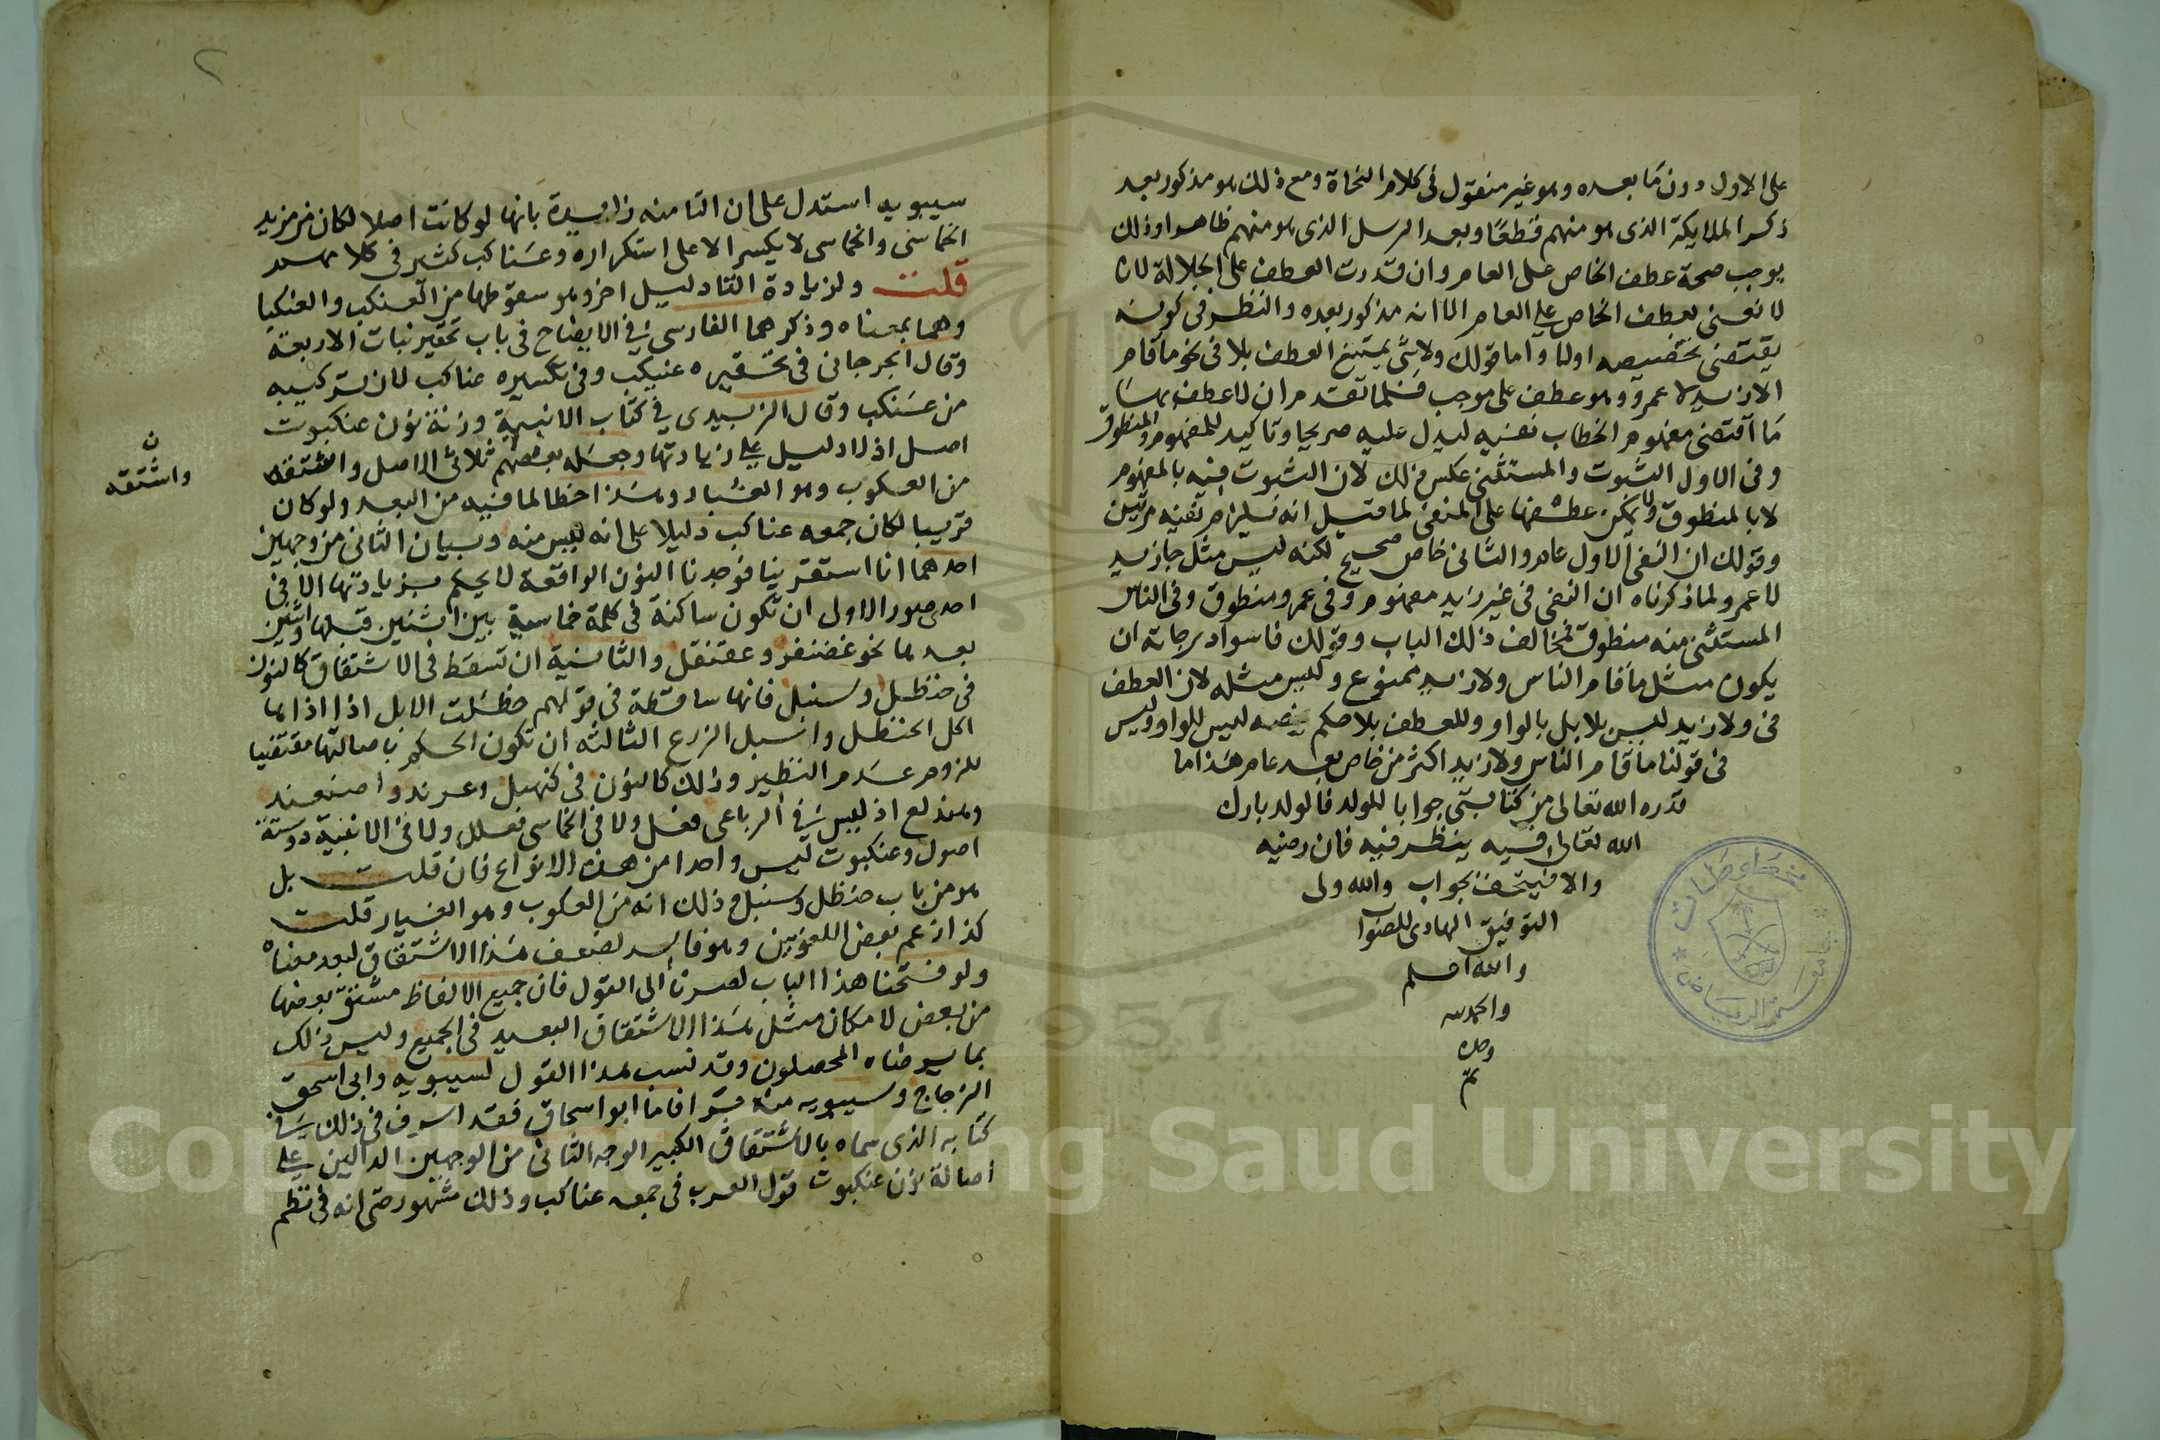 على الاول دون ما بعده وهو غير منقول في كلام النحاة ومع ذلك هو مذكور بعد
ذكر الملايكة الذى هو منهم قطعا وبعد الرسل الذى هو منهم ظاهرا وذلك
يوجب صحة عطف الخاص على العام وان قدرت العطف على الجلالة لانا
لا نعنى بعطف الخاص على العام الا انه مذكور بعده والنظر في كونه
يقتضى تخصيصه اولا واما قولك ولا شئ يمتنع العطف بلا في نحو ما قام
الا زيد لا عمرو وهو عطف على موجب فلما تقدم ان لا عطف بها
ما اقتضى مفهوم الخطاب نفيه ليدل عليه صريحا وتاكيد للمفهوم والمنطوق
وفى الاول الثبوت والمستثنى عكس ذلك لان الثبوت فيه بالمفهوم
لا بالمنطوق ولا يمكن عطفها على المنفى لما قيل انه يلزم نفيه مرتين
وقولك ان النفى الاول عام والثانى خاص صحيح لكنه ليس مثل جا زيد
لا عمرو لما ذكرناه ان النفى في غير زيد مفهوم وفى عمرو منطوق وفى الناس
المستثنى منه منطوق فخالف ذلك الباب وقولك فاسوا درجاته ان
يكون مثل ما قام الناس ولا زيد ممنوع وليس مثله لان العطف
فى ولا زيد ليس بلا بل بالواو وللعطف بلا حكم يخصه ليس للواو وليس
فى قولنا ما قام الناس ولا زيد اكثر من خاص بعد عام هذا ما
قدره الله تعالى من كتابتى جوابا للولد فالولد بارك
الله تعالى فيه ينظر فيه فان رضيه
والا فيتحف بجواب والله ولى
التوفيق الهادى للصواب
والله اعلم
والحمد لله
وحده
تم
جامعة الرياض
مخطوطات
٢
سيبويه استدل على ان التا منه زايدة بانها لو كانت اصلا لكان من مزيد
الخماسى والخماسى لا يكسر الا على استكراه وعناكب كثير في كلامهم
قلت ولزيادة التا دليل اخر وهو سقوطها من العنكب والعنكبا
وهما بمعناه وذكرهما الفارسى في الايضاح فى باب تحقير بنات الاربعة
وقال الجرجانى فى تحقيره عنيكب وفى تكسيره عناكب لان تركيبه
من عنكب وقال الزبيدى في كتاب الابنية وزنة نون عنكبوت
اصل اذ لا دليل على زيادتها وجعله بعضهم ثلاثى الاصل واشتقه
من العكوب وهو الغبار وهذا خطا لما فيه من البعد ولو كان
قريبا لكان جمعه عناكب دليلا على انه ليس منه وبيان الثانى من وجهين
احدهما انا استقرينا فوجدنا النون الواقعة لا يحكم بزيادتها الا فى
احدى صور الاولى ان تكون ساكنة فى كلمة خماسية بين اثنين قبلها واثنين
بعدها نحو غضنفر وعقنقل والثانية ان تسقط فى الاشتقاق كالنون
فى حنظل وسنبل فانها ساقطة فى قولهم حظلت الابل اذا اذاها
اكل الحنظل واسبل الزرع الثالثه ان تكون الحكم باصالتها مقتضيا
للزوم عدم النظير وذلك كالنون فى كنهبل وعرند
وهندلع اذ ليس في الرباعى فعل ولا فى الخماسى فعلل ولا فى الابنية ذو ستة
اصول وعنكبوت ليس واحدا من هذه الانواع فان قلت بل
هو من باب حنظل وسنبل وذلك انه من العكوب وهو الغبار قلت
كذا زعم بعض اللغويين وهو فاسد لضعف هذا الاشتقاق لبعد معناه
ولو فتحنا هذا الباب لصرنا الى القول فان جميع الالفاظ مشتق بعضها
من بعض لامكان مثل هذا الاشتقاق البعيد فى الجميع وليس ذلك
بما يرضاه المحصلون وقد نسب هذا القول لسيبويه وابى اسحق
الزجاج وسيبويه منه مبرا فاما ابو اسحاق فقد اسرف فى ذلك في
كتابه الذى سماه بالاشتقاق الكبير الوجه الثانى من الوجهين الدالين على
اصالة نون عنكبوت قول العرب فى جمعه عناكب وذلك مشهور حتى انه فى نظم
ن
واشتقه
Copyright © King Saud University
1957